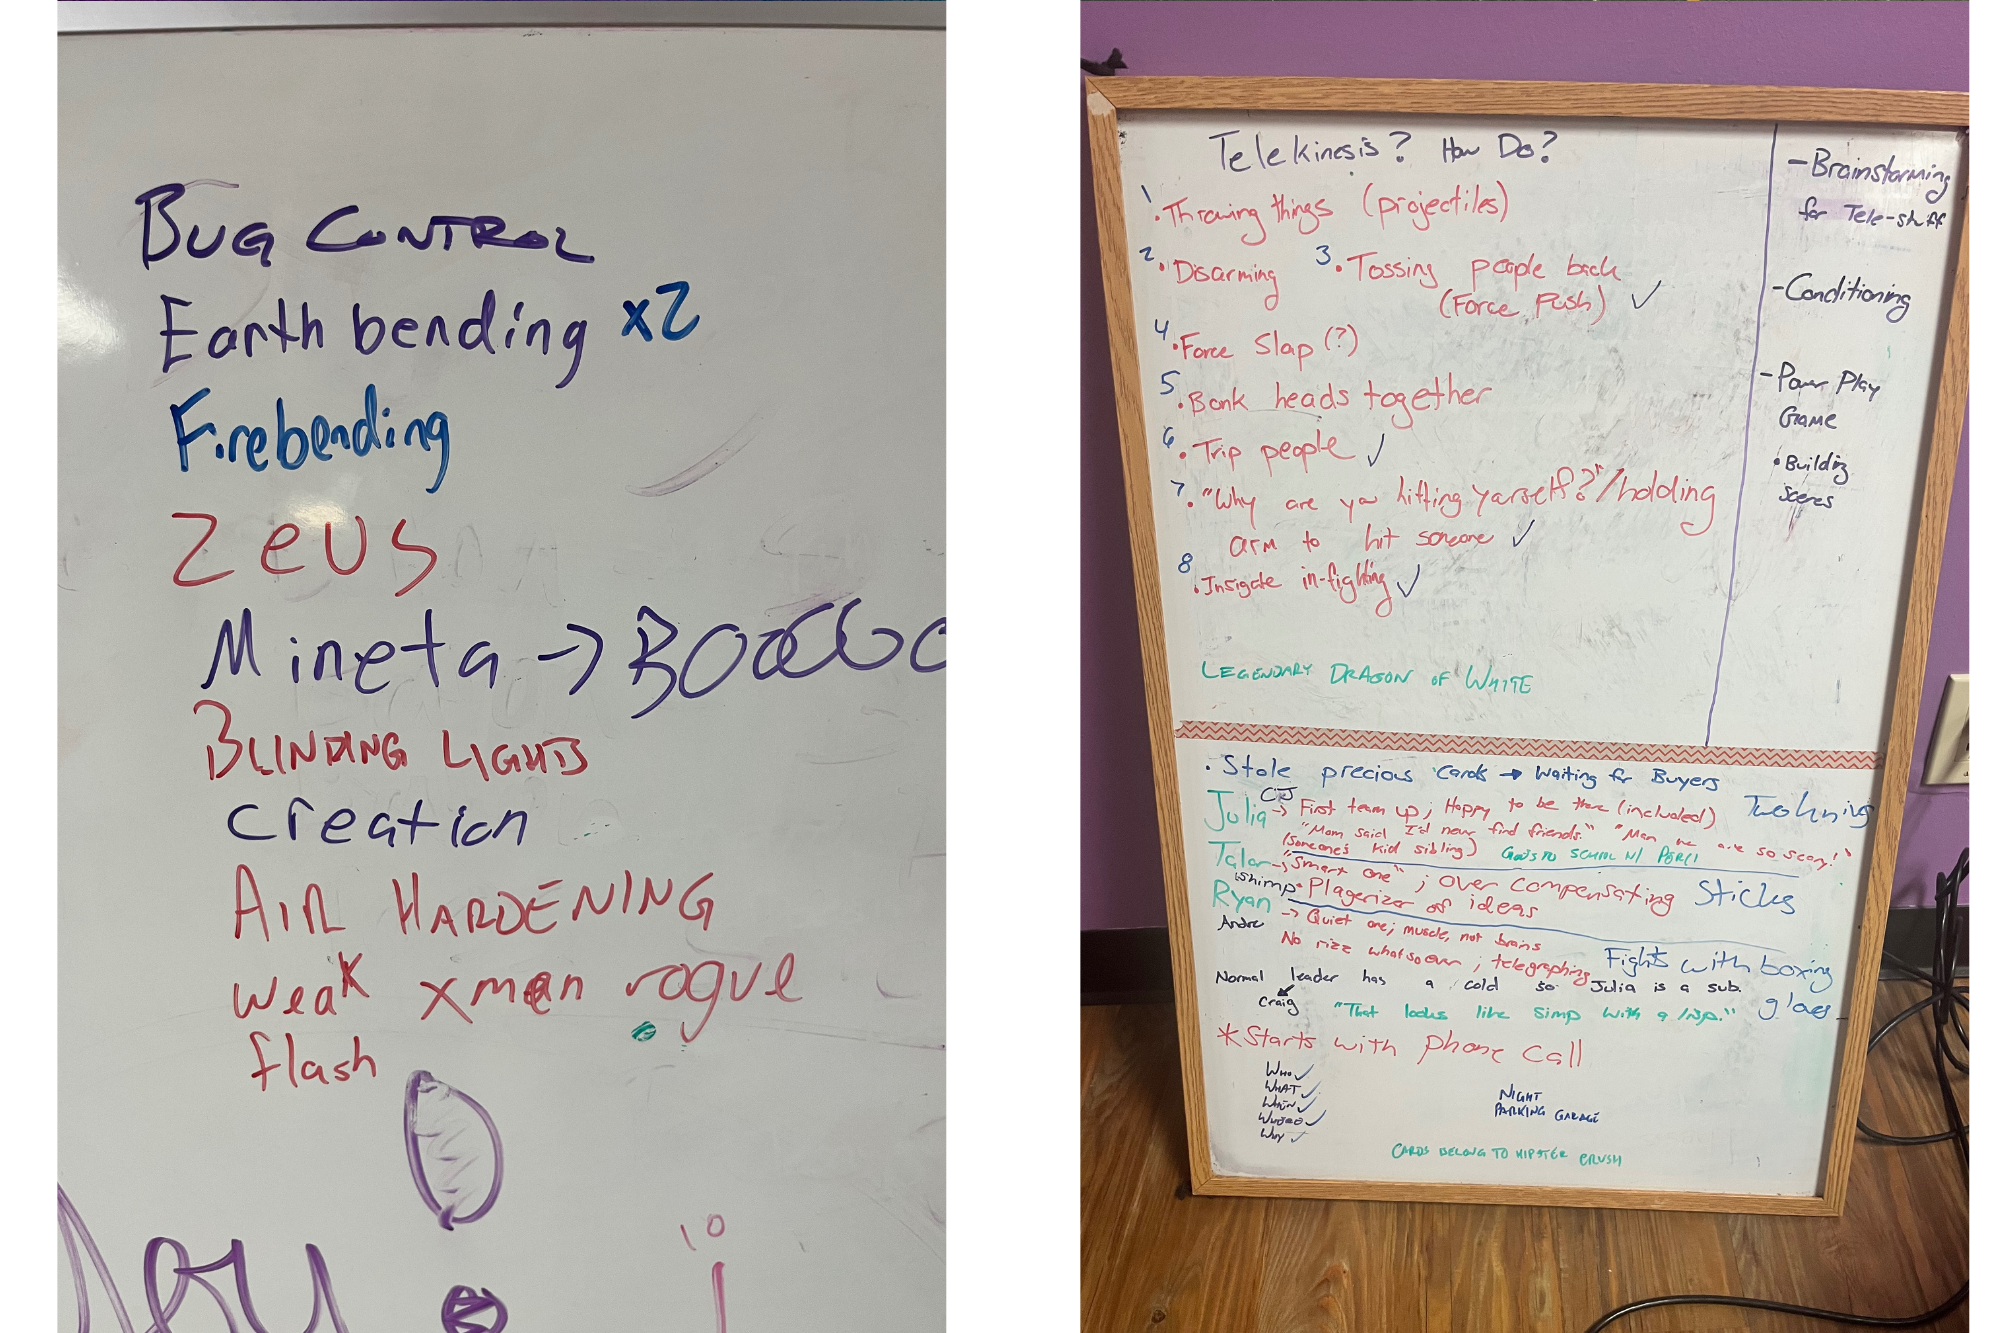 BUG CONTROL
Earth bending x2
Firebending
Zeus
Mineta →
BLINDING LIGHTS
Creation
AIR HARDENING
weak xmen rogue
flash
10
Telekinesis? How Do?
1 • Throwing things (projectiles)
2 • Disarming 3 • Tossing people back
(Force Push) ✓
4 • Force Slap (?)
5 • Bonk heads together
6 • Trip people ✓
7 • "Why are you hitting yourself?"/holding
arm to hit someone ✓
8 • Insigate in-fighting ✓
LEGENDARY DRAGON OF WHITE
- Brainstorming
for Tele-stuff
- Conditioning
- Power Play
Game
• Building
scenes
• Stole precious cards → Waiting for Buyers
CJ
Julia → First team up; Happy to be there (included)
"Mom said I'd never find friends." "Man we are so scary!"
(someone's kid sibling) GOES TO SCHOOL W/
Talor → "Smart one"; over compensating Sticks
whimp • Plagerizor of ideas
Ryan
Andre → Quiet one; muscle, not brains
No rizz whatsoever; telegraphing Fights with boxing
gloves
Normal leader has a cold so Julia is a sub.
Craig "That looks like simp with a lisp."
*Starts with phone call
WHO ✓
WHAT ✓
WHEN ✓
WHERE ✓
WHY ✓
NIGHT
PARKING GARAGE
CARDS BELONG TO HIPSTER CRUSH